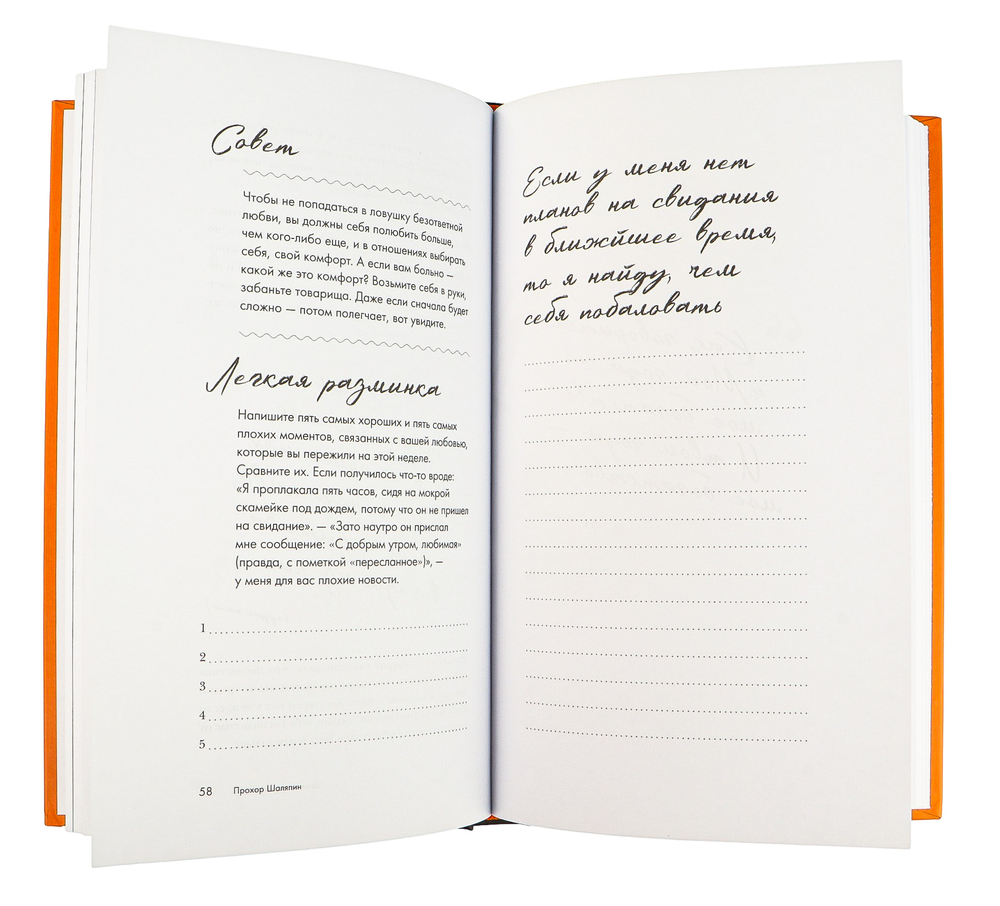 Совет
Чтобы не попадаться в ловушку безответной
любви, вы должны себя полюбить больше,
чем кого-либо еще, и в отношениях выбирать
себя, свой комфорт. А если вам больно —
какой же это комфорт? Возьмите себя в руки,
забаньте товарища. Даже если сначала будет
сложно — потом полегчает, вот увидите.
Легкая разминка
Напишите пять самых хороших и пять самых
плохих моментов, связанных с вашей любовью,
которые вы пережили на этой неделе.
Сравните их. Если получилось что-то вроде:
«Я проплакала пять часов, сидя на мокрой
скамейке под дождем, потому что он не пришел
на свидание». — «Зато наутро он прислал
мне сообщение: «С добрым утром, любимая»
(правда, с пометкой «пересланное»)», —
у меня для вас плохие новости.
1
2
3
4
5
58 Прохор Шаляпин
Если у меня нет
планов на свидания
в ближйшее время,
то я найду, чем
себя побаловать